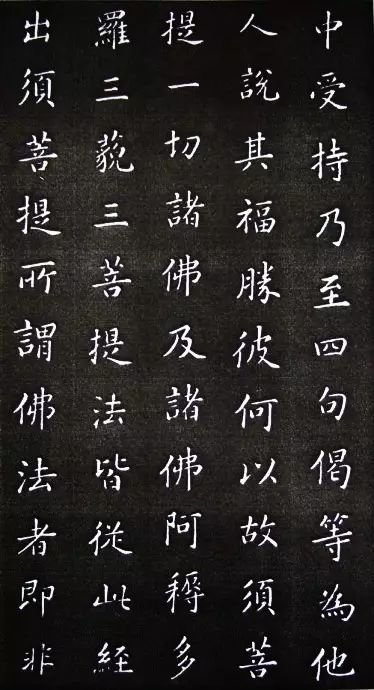 中受持乃至四句偈等為他
人說其福勝彼何以故須菩
提一切諸佛及諸佛阿耨多
羅三藐三菩提法皆從此經
出須菩提所謂佛法者即非